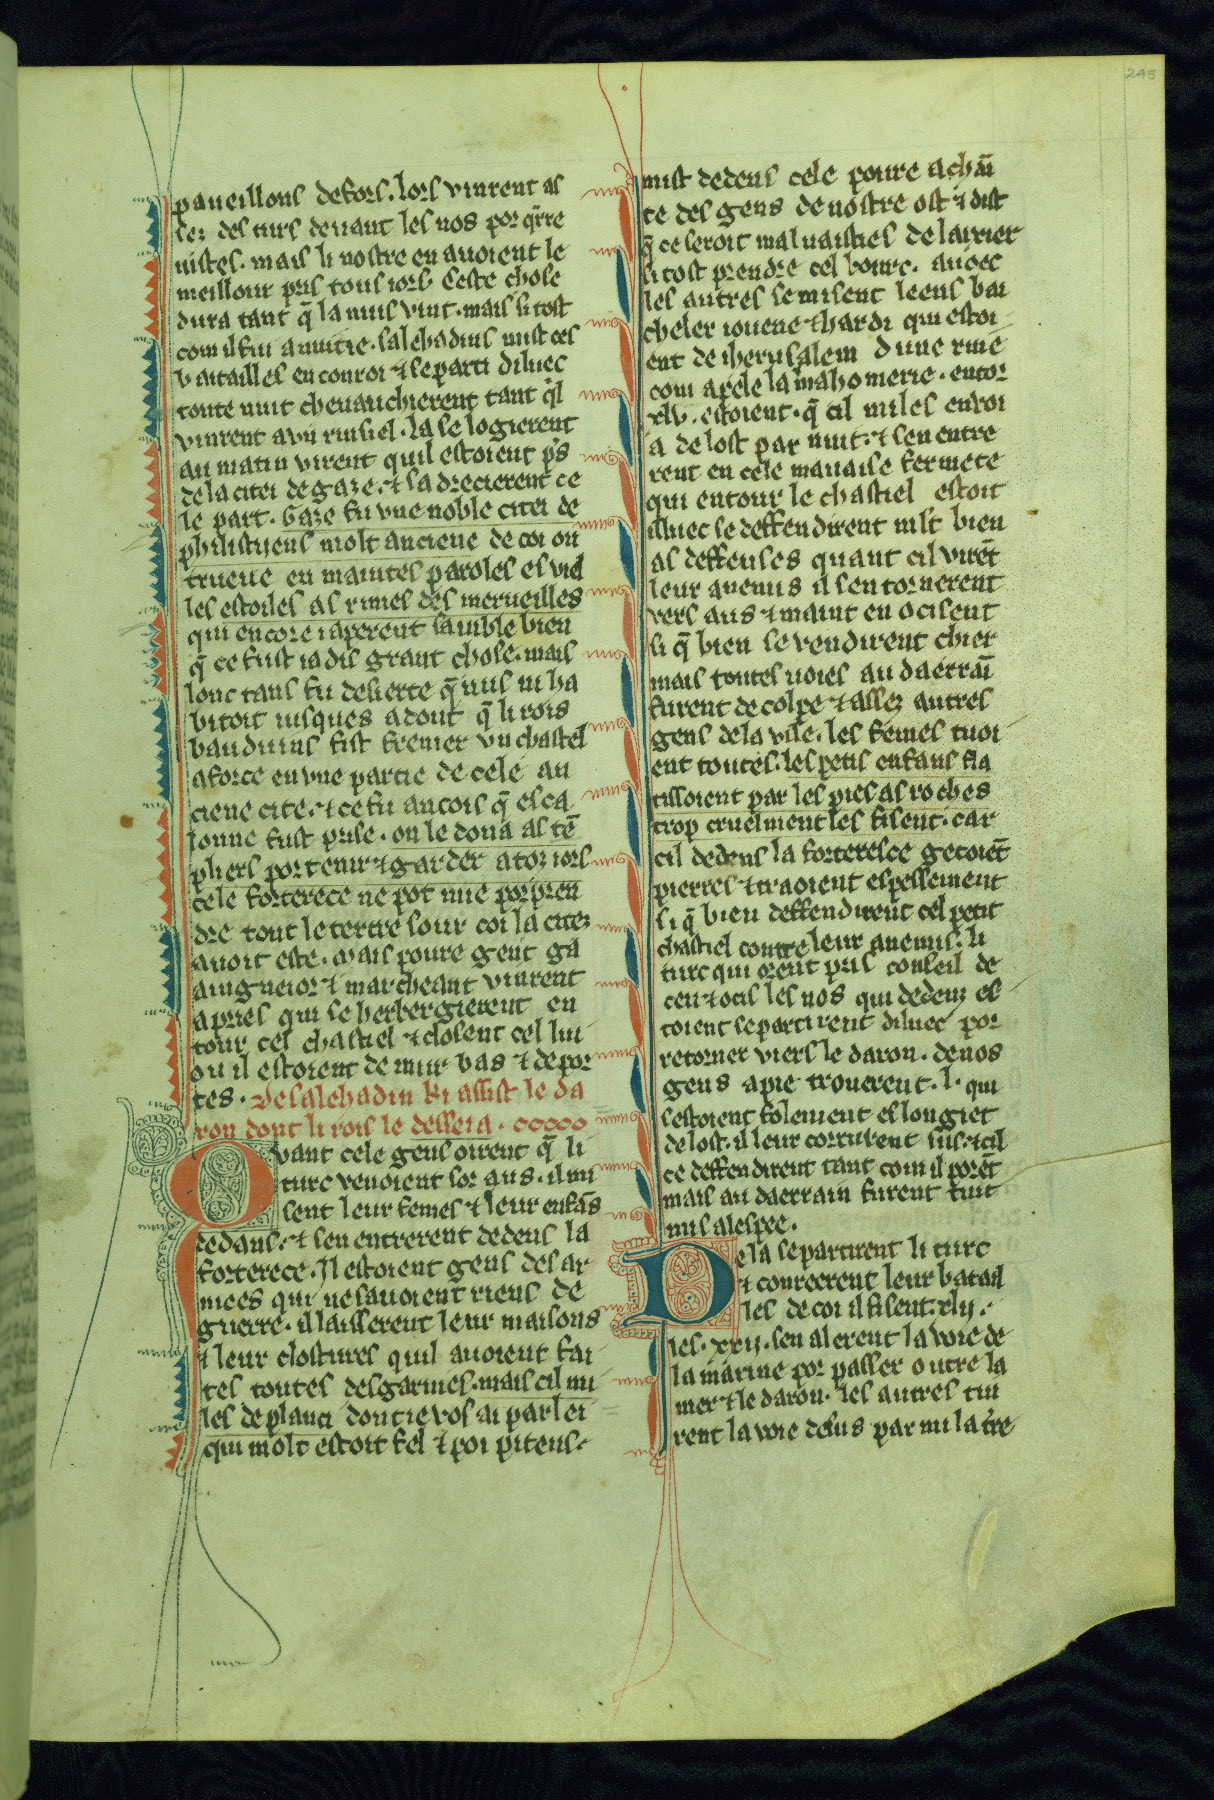 245
paueillons defors. lors vinrent as
ses des turs deuant les nos por q̄rre
nistes. mais li nostre en auoient le
meillour pris tous iors. Ceste chose
dura tant q̄ la nuis vint. mais si tost
com il fu anuitie. salehadins mist ces
vaitailles en couroi ⁊ se parti diluec
toute nuit cheuauchierent tant q̄l
vinrent a vn ruissel. la se logierent
au matin virent quil estoient p̄s
de la citei de gaze. ⁊ sa drecierent ce
le part. Gaze fu vne noble citei de
philistijens molt anciene de coi on
trueue en maintes paroles es viel
les estoiles as rimes des merueilles
qui encore i aperent samble bien
q̄ ce fust ia dis grant chose. mais
lonc tans fu deserte q̄ nus ni ha
bitoit iusques adont q̄ li rois
bauduins fist fremer vn chastel
a force en vne partie de cele an
ciene cite. ⁊ ce fu ancois q̄ esca
lonne fust prise. on le dona as tē
pliers por tenir ⁊ garder a toz iors
cele forterece ne pot mie porpren
dre tout le tertre sour coi la citez
auoit este. mais poure gent ga
aingneior ⁊ marcheant vinrent
apries qui se herbergierent en
tour cel chastiel ⁊ closent cel liu
ou il estoient de mur bas ⁊ de por
tes. De salehadin ki assist le da
ron dont li rois le desseia. ccccc
Quant cele gens oirent q̄ li
turc venoient sor aus. il mi
sent leur femes ⁊ leur enfās
dedans. ⁊ sen entrerent dedens la
forterece. Il estoient gens desar
mees qui ne sauoient riens de
guerre. il laisserent leur maisons
⁊ leur clostures quil auoient fai
tes toutes desgarnies. mais cil mi
les de planci dont ie vos ai parlei
qui molt estoit fel ⁊ poi piteus
mist dedens cele poure a chāi
te des gens de nostre ost ⁊ dist
q̄ ce seroit maluaisties de laixier
si tost prendre cel bourc. auoec
les autres se misent leens bai
cheler iouene ⁊ hardi qui estoi
ent de iherusalem dune rine
com apele la mahomerie. entor
.xlv. estoient. q̄ cil miles enuoi
a de lost par nuit. ⁊ sen entre
rent en cele mauaise fermete
qui entour le chastiel estoit
illuec se deffendirent mlt bien
as deffenses quant cil virēt
leur anemis il sen tornerent
vers aus ⁊ maint en ocisent
si q̄ bien se vendirent chier
mais toutes uoies au daerrāi
furent decolpe ⁊ assez autres
gens de la vile. les femes tuoi
ent toutes. les petis enfans fla
tissoient par les pies as roches
trop cruelment les fisent. car
cil dedens la forteresce getoiēt
pierres ⁊ traoient espessement
si q̄ bien deffendirent cel petit
chastiel contre leur anemis. li
turc qui orent pris conseil de
ceu ⁊ ocis les nos qui dedenz es
toient se partirent diluec por
retorner viers le daron. de nos
gens a pie trouerent. l. qui
sestoient folement eslongiet
de lost. il leur corrurent sus. ⁊ cil
ce deffendirent tant com il porēt
mais au daerrain furent tuit
mis a lespee.
De la se partirent li turc
⁊ conreerent leur batail
les de coi il fisent. xlij.
les. xxij. sen alerent la voie de
la marine por passer outre la
mer ⁊ le daron. les autres tin
rent la voie desus par mi la tr̄e